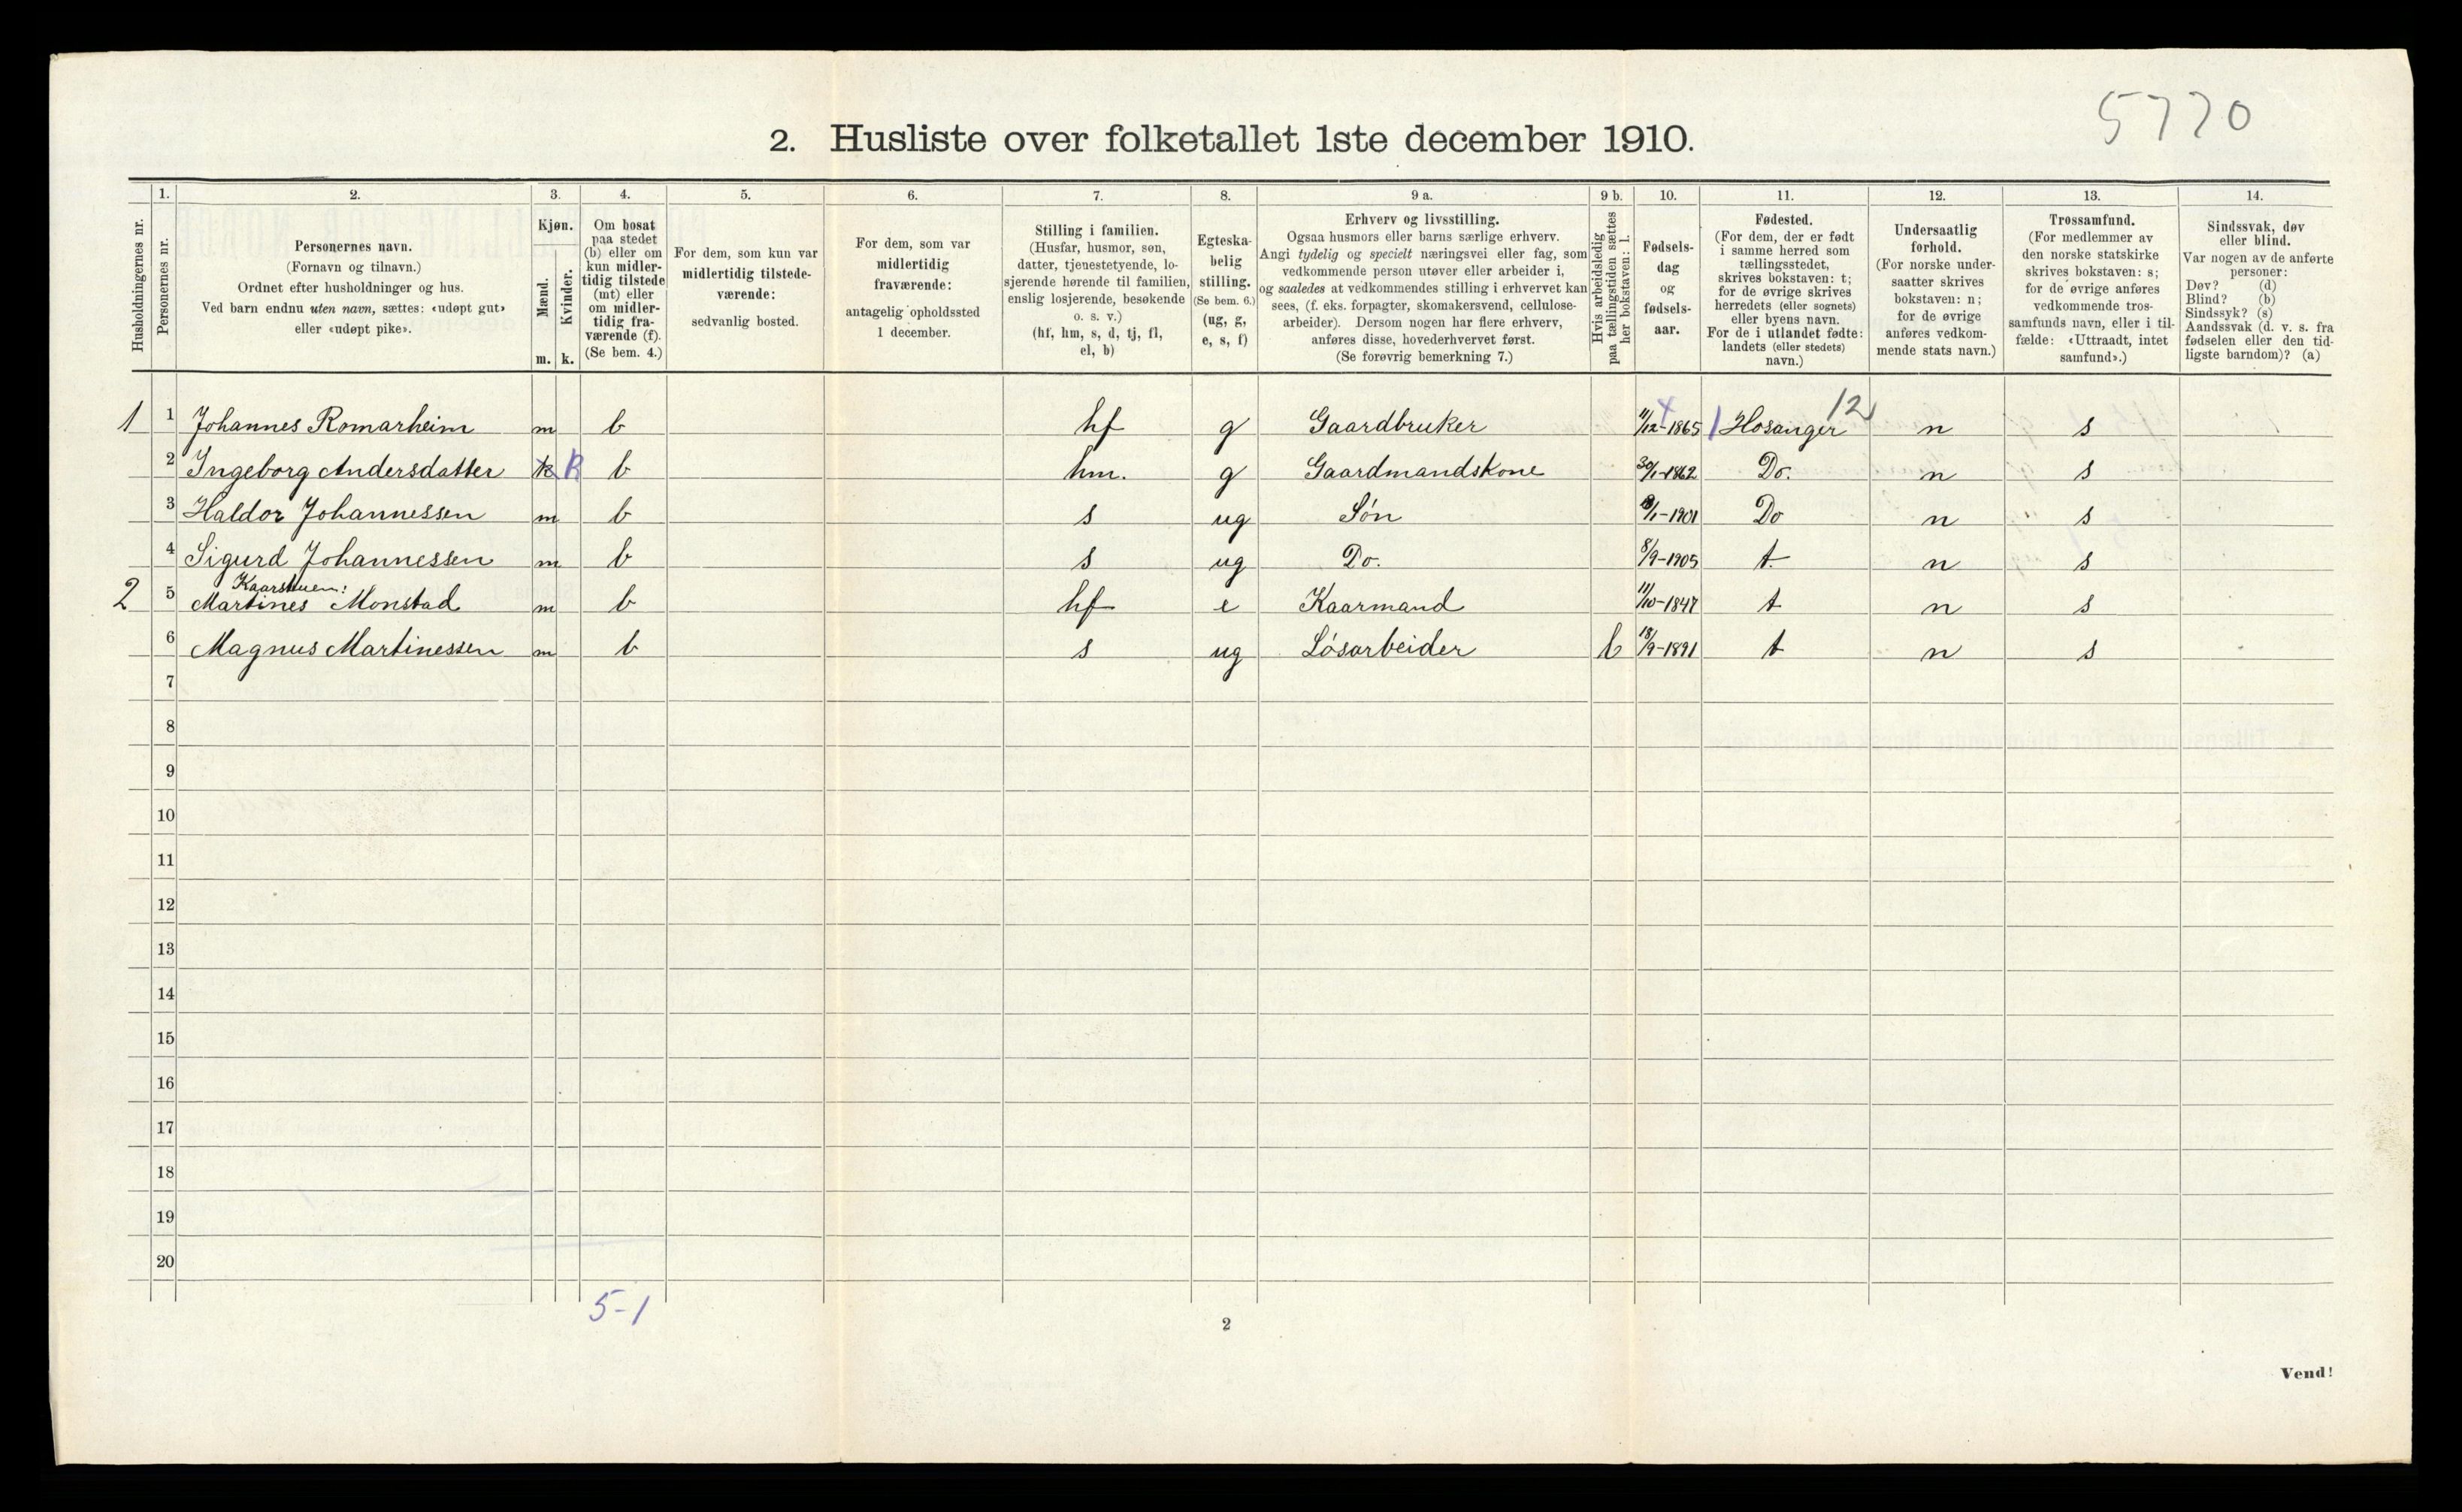 5770
2. Husliste over folketallet 1ste december 1910.
Husholdningernes nr.
1.
Personernes nr.
2.
Personernes navn.
(Fornavn og tilnavn.)
Ordnet efter husholdninger og hus.
Ved barn endnu uten navn, sættes: «udøpt gut»
eller «udøpt pike».
3.
Kjøn.
Mænd.
Kvinder.
m. k.
4.
Om bosat
paa stedet
(b) eller om
kun midler-
tidig tilstede
(mt) eller
om midler-
tidig fra-
værende (f).
(Se bem. 4.)
5.
For dem, som kun var
midlertidig tilstede-
værende:
sedvanlig bosted.
6.
For dem, som var
midlertidig
fraværende:
antagelig opholdssted
1 december.
7.
Stilling i familien.
(Husfar, husmor, søn,
datter, tjenestetyende, lo-
sjerende hørende til familien,
enslig losjerende, besøkende
o. s. v.)
(hf, hm, s, d, tj, fl,
el, b)
8.
Egteska-
belig
stilling.
(Se bem. 6.)
(ug, g,
e, s, f)
9 a.
Erhverv og livsstilling.
Ogsaa husmors eller barns særlige erhverv.
Angi tydelig og specielt næringsvei eller fag, som
vedkommende person utøver eller arbeider i,
og saaledes at vedkommendes stilling i erhvervet kan
sees, (f. eks. forpagter, skomakersvend, cellulose-
arbeider). Dersom nogen har flere erhverv,
anføres disse, hovederhvervet først.
(Se forøvrig bemerkning 7.)
9 b.
Hvis arbeidsledig
paa tællingstiden sættes
her bokstaven: l.
10.
Fødsels-
dag
og
fødsels-
aar.
11.
Fødested.
(For dem, der er født
i samme herred som
tællingsstedet,
skrives bokstaven: t;
for de øvrige skrives
herredets (eller sognets)
eller byens navn.
For de i utlandet fødte:
landets (eller stedets)
navn.)
12.
Undersaatlig
forhold.
(For norske under-
saatter skrives
bokstaven: n;
for de øvrige
anføres vedkom-
mende stats navn.)
13.
Trossamfund.
(For medlemmer av
den norske statskirke
skrives bokstaven: s;
for de øvrige anføres
vedkommende tros-
samfunds navn, eller i til-
fælde: «Uttraadt, intet
samfund».)
14.
Sindssvak, døv
eller blind.
Var nogen av de anførte
personer:
Døv? (d)
Blind? (b)
Sindssyk? (s)
Aandssvak (d. v. s. fra
fødselen eller den tid-
ligste barndom)? (a)
12
1 1 Johannes Romarheim m b hf g Gaardbruker 11/12-1865 Hosanger n s
2 Ingeborg Andersdatter k k b hm. g Gaardmandskone 30/1-1862 Do. n s
3 Haldor Johannessen m b s ug Søn /1-1901 Do n s
4 Sigurd Johannessen m b s ug Do. 8/9-1905 t. n s
Kaarstuen:
2 5 Martines Monstad m b hf e Kaarmand 11/10-1847 t n s
6 Magnus Martinessen m b s ug Løsarbeider l 18/9-1891 t n s
7
8
9
10
11
12
13
14
15
16
17
18
19
20
5-1
2
Vend!